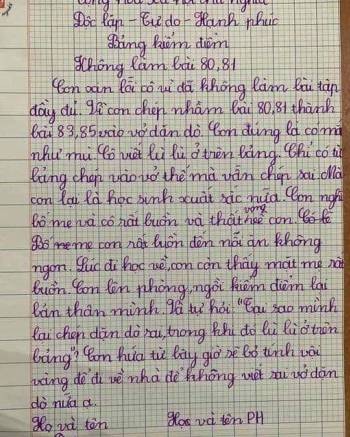 Độc lập - Tự do - Hạnh phúc
Bảng kiểm điểm
Không làm bài 80,81
Con xan lỗi cô vì đã không làm bài tập
đầy đủ. Vì con chép nhầm bài 80,81 thành
bài 83,85 vào vở dăn dò. Con đúng là có mắ
như mù. Cô viết lù lù ở trên bảng. Chỉ có từ
bảng chép vào vở thế mà vẫn chép sai. Mà
con lại là học sinh xuất sắc nữa. Con nghĩ
bố mẹ và cô rất buồn và thất vọng về con. Cô tế
Bố meme con rất buồn đến nỗi ăn không
ngon. Lúc đi học về, con còn thấy mặt mẹ rấ
buồn. Con lên phòng, ngồi kiểm điểm lại
bản thân mình. Tã tự hỏi: "Tại sao mình
lại chép dặn dò sai, trong khi đó lù lù ở trên
bảng"? Con hứa từ bây giờ sẽ bỏ tính vội
vàng để đi về nhà để không viết sai vở dăn
dò nữa ạ.
Họ và tên Học và tên PH